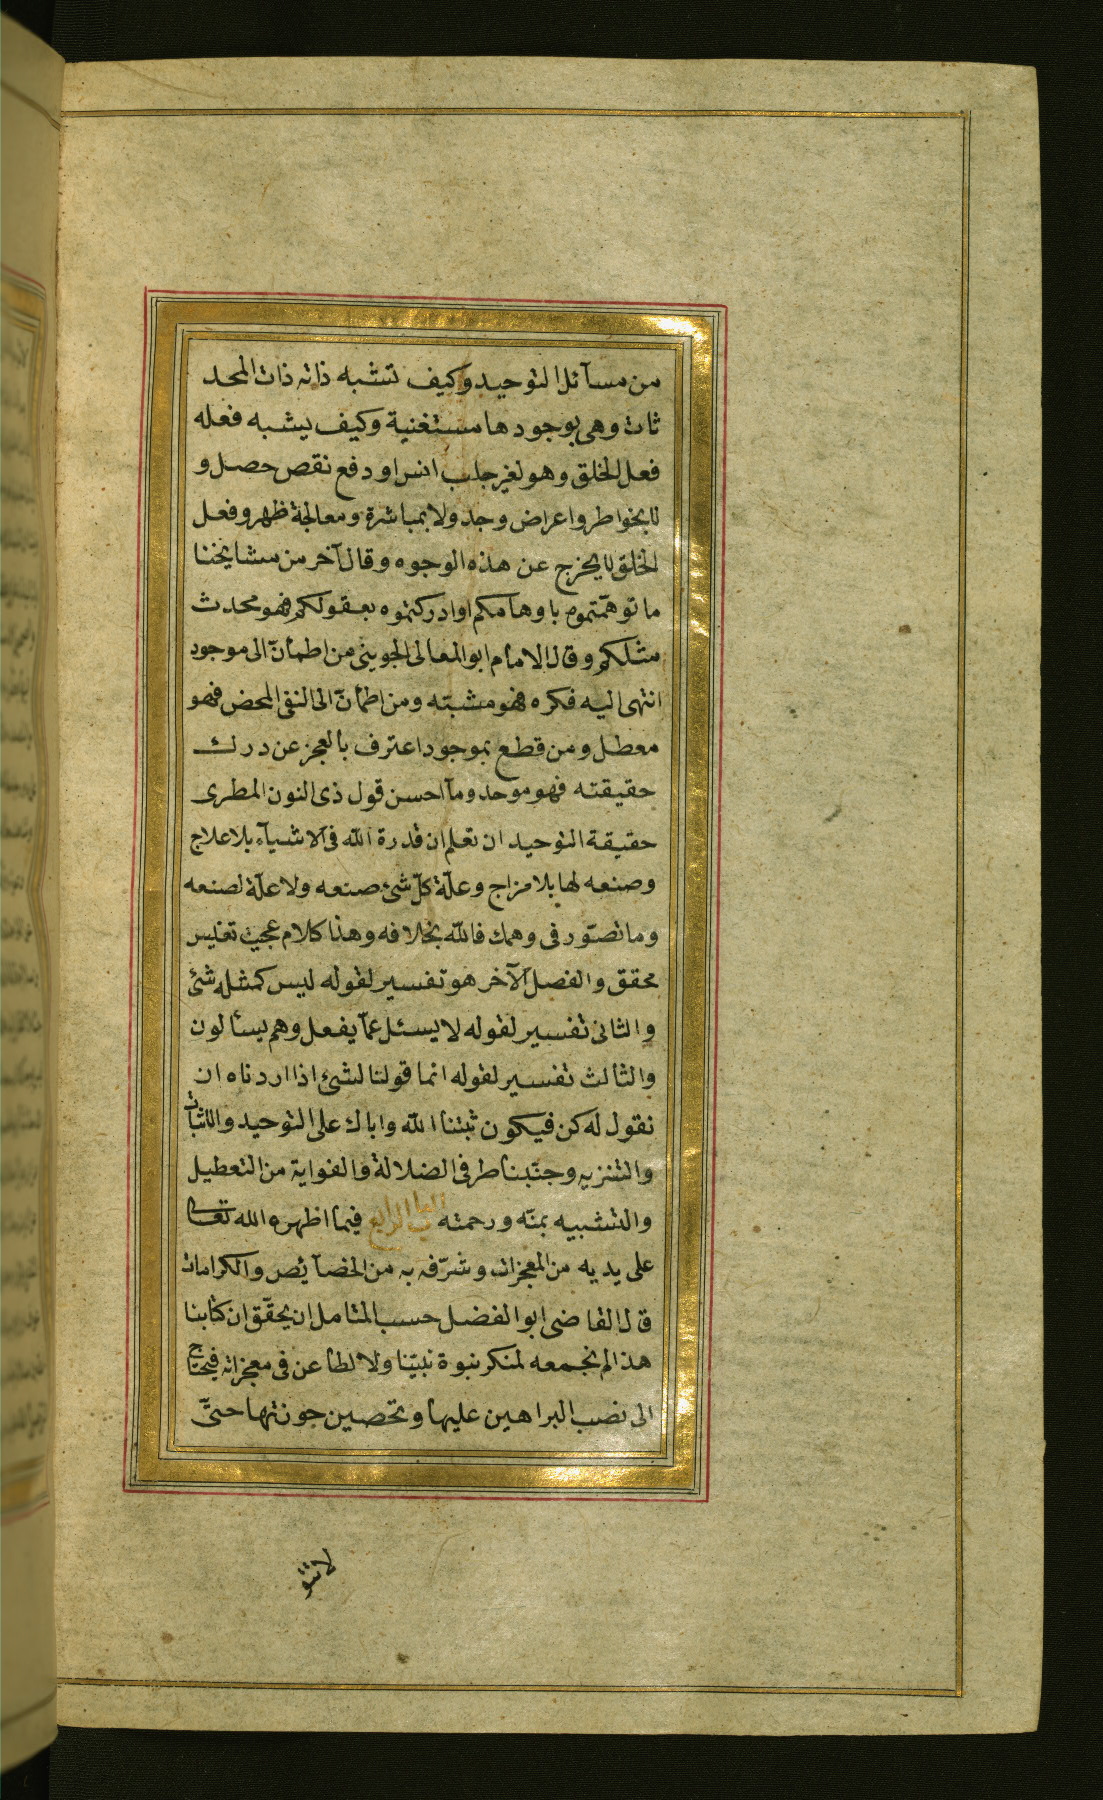 من مسآئل التوحيد وكيف تشبه ذاته ذات المحد
ثات وهي بوجودها مستغنية وكيف يشبه فعله
فعل الخلق وهو لغير جلب انس او دفع نقص حصل و
لا بخواطر واعراض وجد ولا بمباشرة ومعالجة ظهر وفعل
الخلق لا يخرج عن هذه الوجوه وقال آخر من مشايخنا
ما توهّمتموه باوهامكم او ادركتموه بعقولكم فهو محدث
مثلكم وقال الامام ابو المعالى الجوينى من اطمأنّ الى موجود
انتهى اليه فكره فهو مشبته ومن اطمأنّ الى النفى المحض فهو
معطل ومن قطع بموجود اعترف بالعجز عن درك
حقيقته فهو موحد ومآ احسن قول ذى النون المطرى
حقيقة التوحيد ان تعلم ان قدرة الله فى الاشيآء بلا علاج
وصنعه لها بلا مزاج وعلّة كلّ شئ صنعه ولا علّة لصنعه
وما تصوّر فى وهمك فالله بخلافه وهذا كلام عجيب تغيس
محقق والفصل الآخر هو تفسير لقوله ليس كمثله شئ
والثانى تفسير لقوله لا يسئل عمّا يفعل وهم يسألون
والثالث تفسير لقوله انما قولنا لشئ اذا اردناه ان
نقول له كن فيكون ثبتنا الله واياك على التوحيد والاثبات
والتنزيه وجنّبنا طرفى الضلالة والغواية من التعطيل
والتشبيه بمنّه ورحمته الباب الرابع فيما اظهره الله تعالى
على يديه من المعجزات وشرّفه به من الخصآئص والكرامات
قال القاضى ابو الفضل حسب المتامل ان يحقّق ان كتابنا
هذا لم نجمعه لمنكر نبوة نبيّنا ولا لطاعن فى معجزاته فيحتاج
الى نصب البراهين عليها وتحصين جونتها حتّى
لا يتو